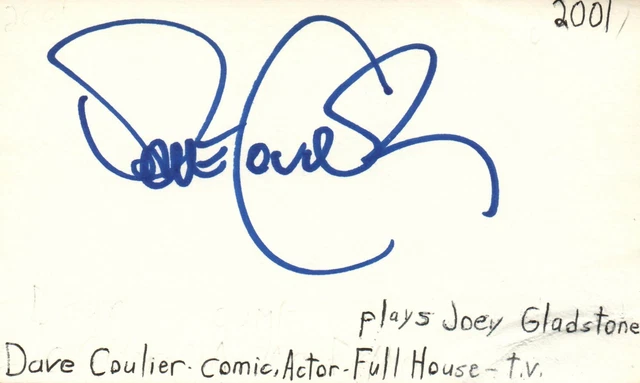 2001
Dave Coulier
plays Joey Gladstone
Dave Coulier - comic, Actor - Full House - t.v.